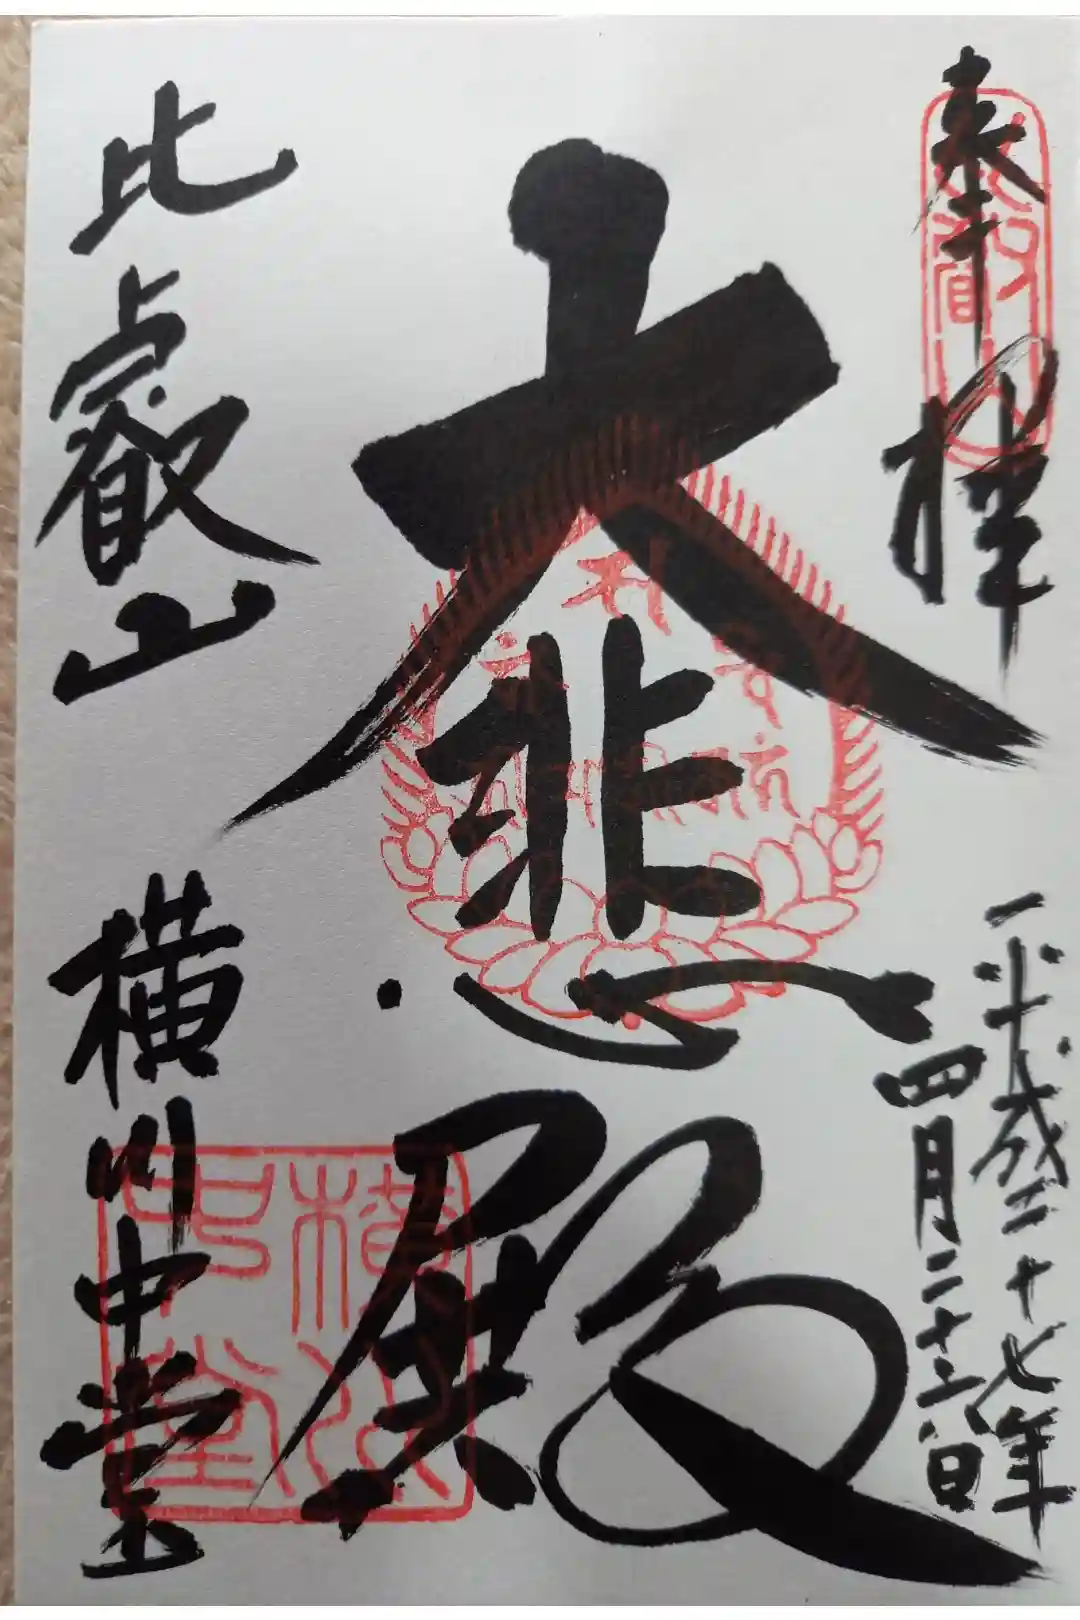 奉拝
比叡山
平成二十七年
四月二十三日
大悲殿
比叡山
横川中堂
横川
中堂